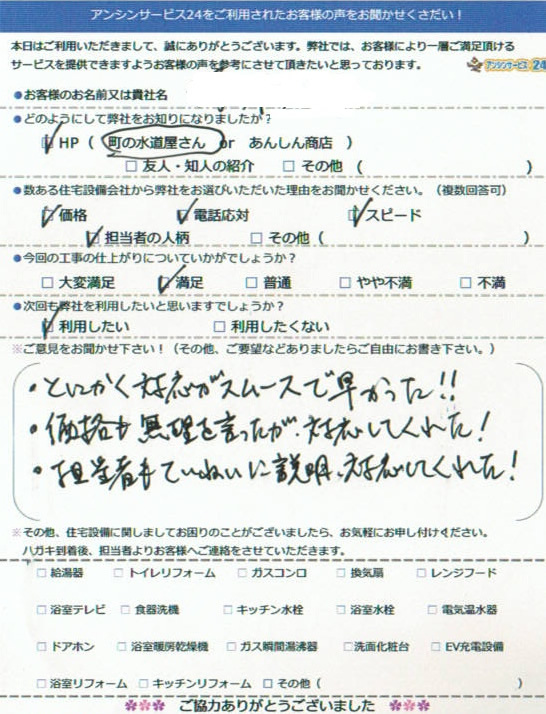 アンシンサービス24をご利用されたお客様の声をお聞かせください！
本日はご利用いただきまして、誠にありがとうございます。弊社では、お客様により一層ご満足頂ける
サービスを提供できますようお客様の声を参考にさせて頂きたいと思っております。
アンシンサービス24
●お客様のお名前又は貴社名
●どのようにして弊社をお知りになりましたか？
☑HP（ 町の水道屋さん or あんしん商店 ）
□友人・知人の紹介 □その他（ ）
●数ある住宅設備会社から弊社をお選びいただいた理由をお聞かせください。（複数回答可）
☑価格 ☑電話応対 ☑スピード
☑担当者の人柄 □その他（ ）
●今回の工事の仕上がりについていかがでしょうか？
□大変満足 ☑満足 □普通 □やや不満 □不満
●次回も弊社を利用したいと思いますでしょうか？
☑利用したい □利用したくない
※ご意見をお聞かせ下さい！（その他、ご要望などありましたらご自由にお書き下さい。）
・とにかく対応がスムースで早かった!!
・価格も無理を言ったが、対応してくれた！
・担当者もていねいに説明、対応してくれた！
※その他、住宅設備に関しましてお困りのことがございましたら、お気軽にお申し付けください。
ハガキ到着後、担当者よりお客様へご連絡をさせていただきます。
□給湯器 □トイレリフォーム □ガスコンロ □換気扇 □レンジフード
□浴室テレビ □食器洗機 □キッチン水栓 □浴室水栓 □電気温水器
□ドアホン □浴室暖房乾燥機 □ガス瞬間湯沸器 □洗面化粧台 □EV充電設備
□浴室リフォーム □キッチンリフォーム □その他（ ）
ご協力ありがとうございました